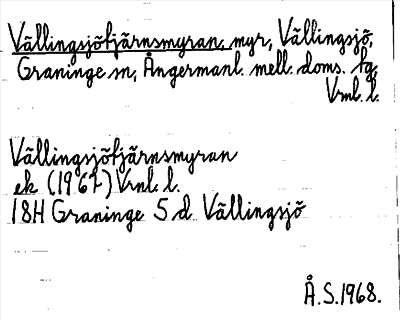 Vällingsjötjärnsmyran, myr, Vällingsjö,
Graninge sn, Ångermanl. mell. doms. tg,
Vrnl. l.
Vällingsjötjärnsmyran
ek (1967) Vrnl. l.
18H Graninge 5 d Vällingsjö
Å.S. 1968.